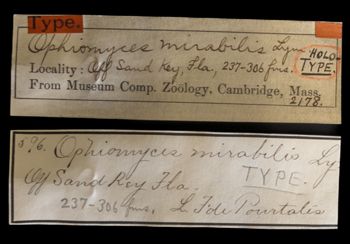 Type.
Ophiomyces mirabilis Lym
HOLO-
TYPE.
Locality: Off Sand Key, Fla., 237-306 fms.
From Museum Comp. Zoology, Cambridge, Mass.
2178.
596. Ophiomyces mirabilis Ly
TYPE.
Off Sand Key Fla.
237-306 fms. L. F. de Pourtalès